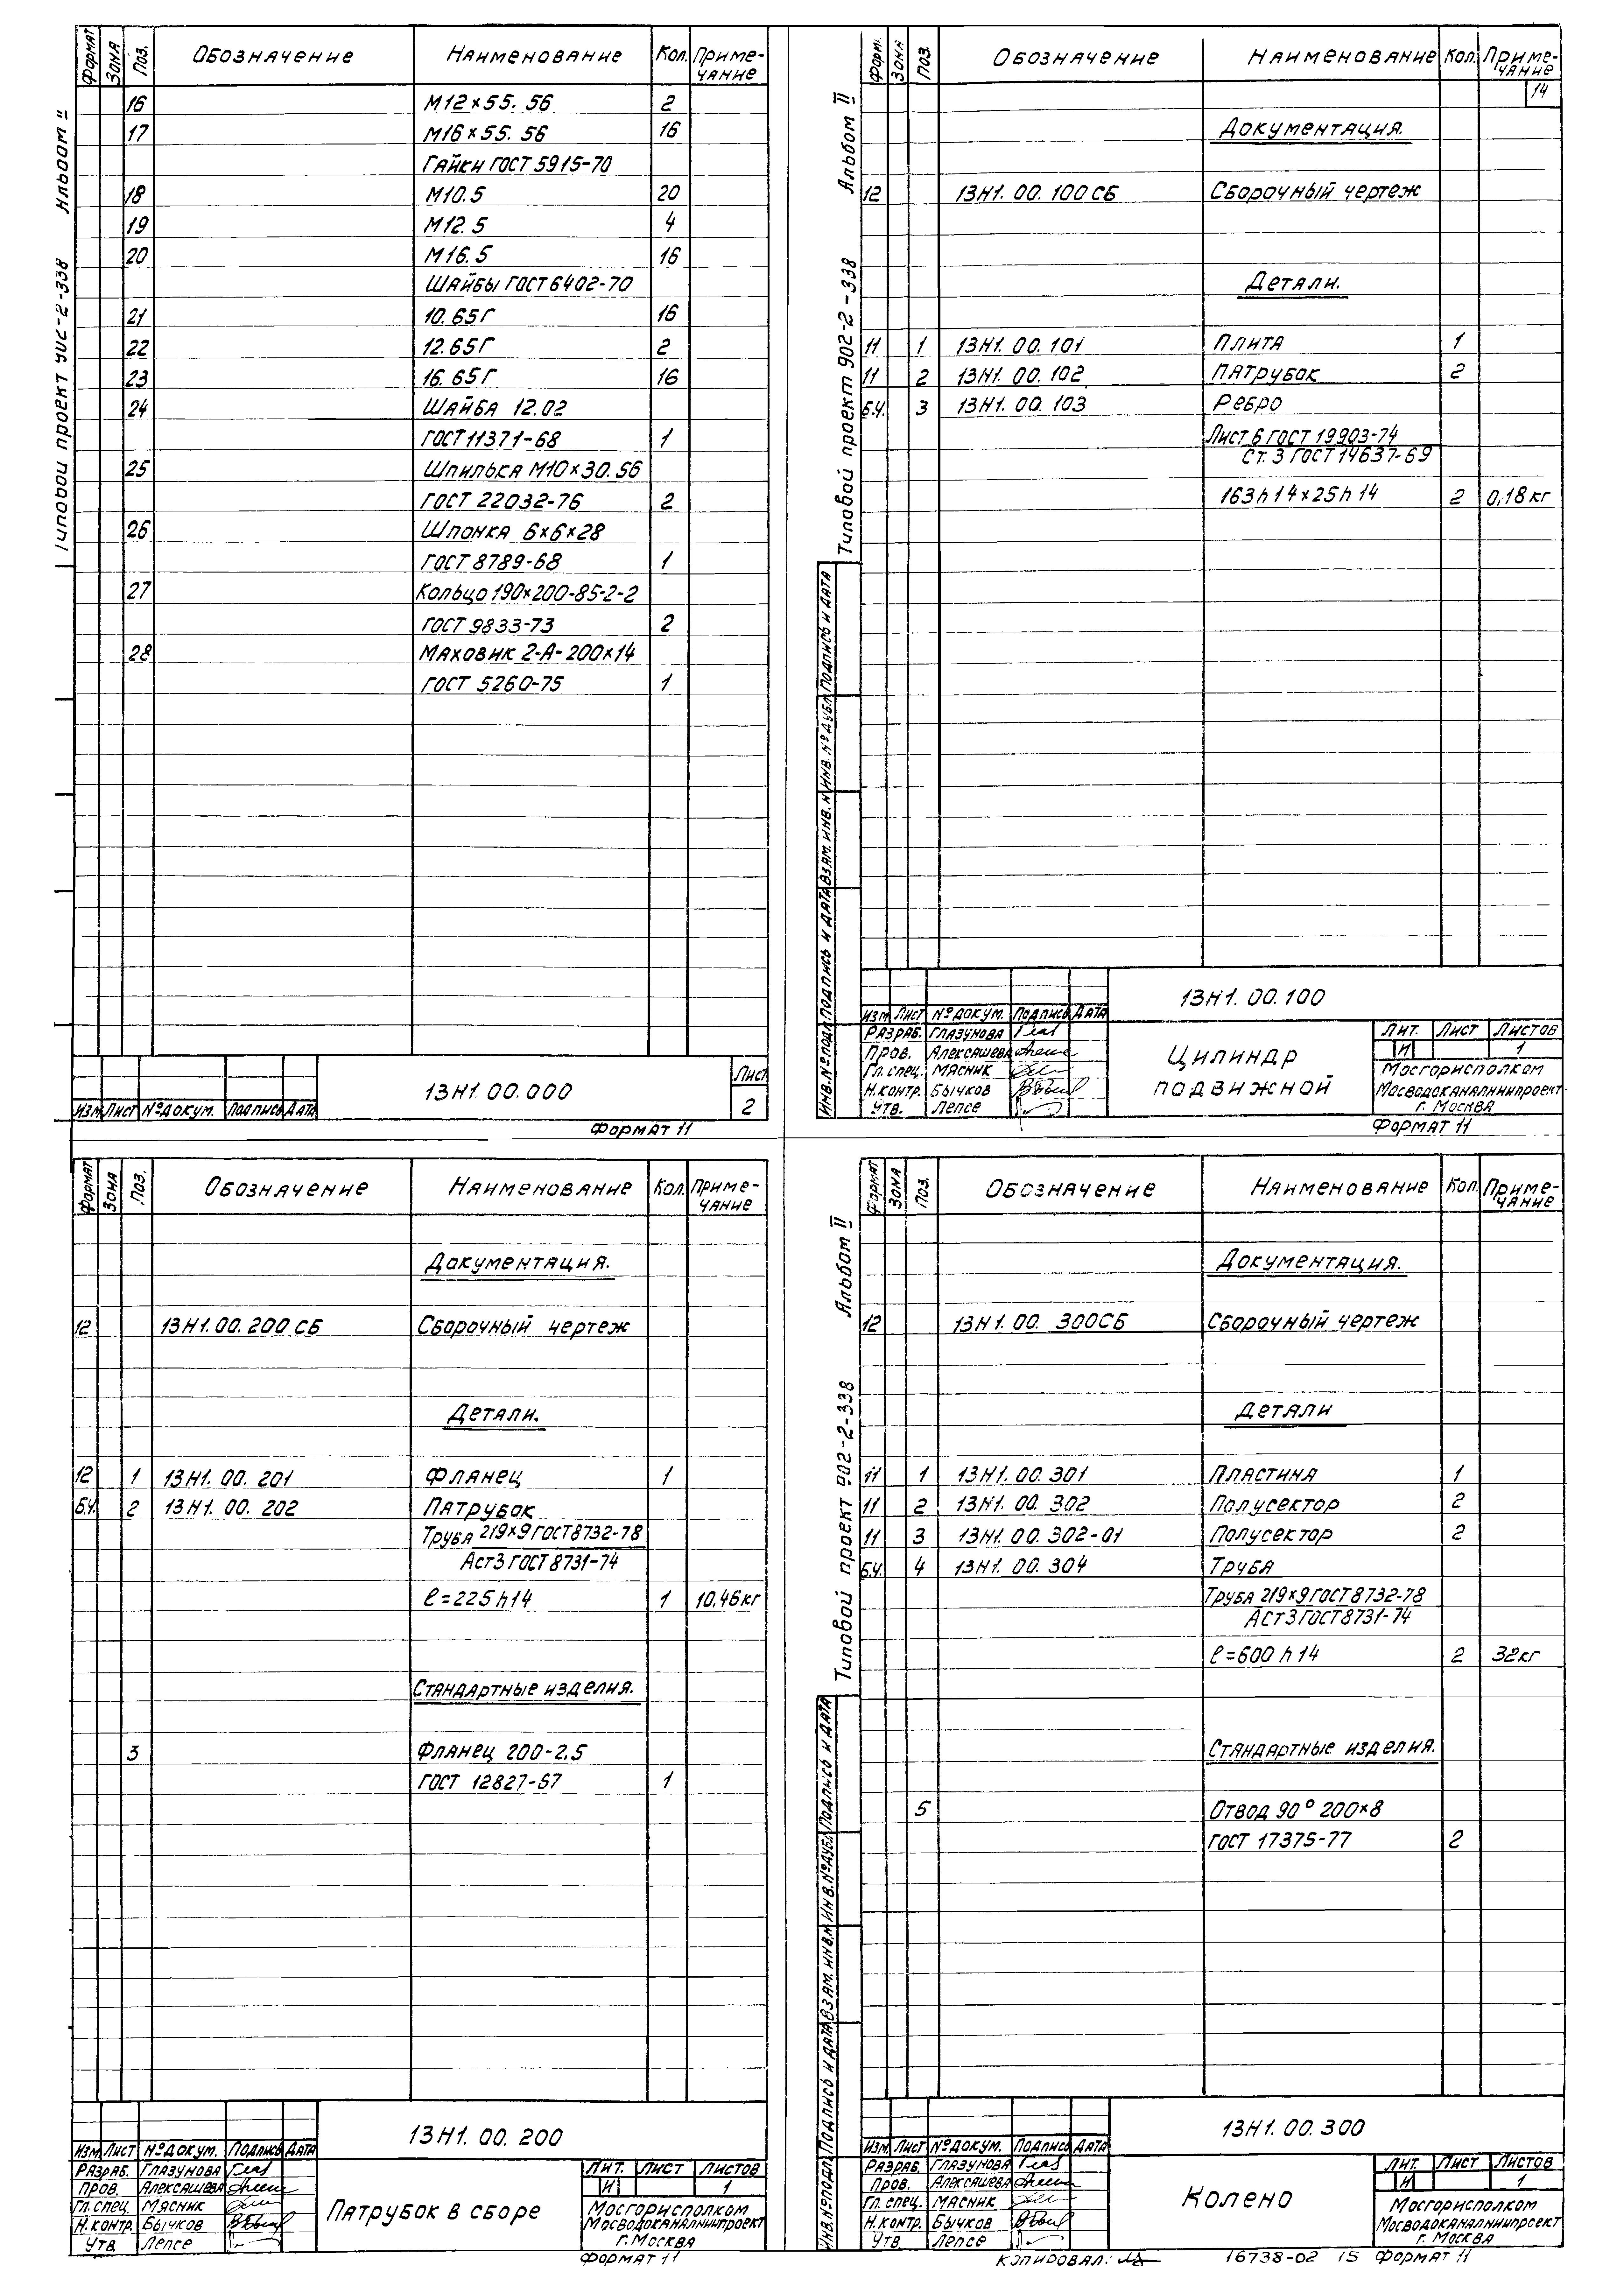 Альбом II
Типовой проект 902-2-338
Формат Зона Поз. Обозначение Наименование Кол. Примечание
16 М12×55.56 2
17 М16×55.56 16
Гайки ГОСТ 5915-70
18 М10.5 20
19 М12.5 4
20 М16.5 16
Шайбы ГОСТ 6402-70
21 10.65Г 16
22 12.65Г 2
23 16.65Г 16
24 Шайба 12.02
ГОСТ 11371-68 1
25 Шпилька М10×30.56
ГОСТ 22032-76 2
26 Шпонка 6×6×28
ГОСТ 8789-68 1
27 Кольцо 190×200-85-2-2
ГОСТ 9833-73 2
28 Маховик 2-А-200×14
ГОСТ 5260-75 1
13Н1.00.000
Лист
2
Изм Лист №докум. Подпись Дата
Формат 11
Альбом II
Типовой проект 902-2-338
Форм. Зона Поз. Обозначение Наименование Кол. Примечание
14
Документация.
12 13Н1.00.100СБ Сборочный чертеж
Детали.
11 1 13Н1.00.101 Плита 1
11 2 13Н1.00.102 Патрубок 2
Б.Ч. 3 13Н1.00.103 Ребро
Лист 6 ГОСТ 19903-74
Ст.3 ГОСТ 14637-69
163h14×25h14 2 0,18кг
Инв.№подл Подпись и дата Взам. инв.№ Инв.№дубл Подпись и дата
13Н1.00.100
Изм Лист №докум. Подпись Дата
Разраб. Глазунова
Пров. Алексашева
Гл.спец. Мясник
Н.контр. Бычков
Утв. Лепсе
Цилиндр
подвижной
Лит. Лист Листов
И 1
Мосгорисполком
Мосводоканалниипроект
г. Москва
Формат 11
Формат Зона Поз. Обозначение Наименование Кол. Примечание
Документация.
12 13Н1.00.200СБ Сборочный чертеж
Детали.
12 1 13Н1.00.201 Фланец 1
Б.Ч. 2 13Н1.00.202 Патрубок
Труба 219×9 ГОСТ 8732-78
Аст3 ГОСТ 8731-74
ℓ=225h14 1 10,46кг
Стандартные изделия.
3 Фланец 200-2,5
ГОСТ 12827-67 1
13Н1.00.200
Изм Лист №докум. Подпись Дата
Разраб. Глазунова
Пров. Алексашева
Гл.спец. Мясник
Н.контр. Бычков
Утв. Лепсе
Патрубок в сборе
Лит. Лист Листов
И 1
Мосгорисполком
Мосводоканалниипроект
г. Москва
Формат 11
Альбом II
Типовой проект 902-2-338
Формат Зона Поз. Обозначение Наименование Кол. Примечание
Документация.
12 13Н1.00.300СБ Сборочный чертеж
Детали
11 1 13Н1.00.301 Пластина 1
11 2 13Н1.00.302 Полусектор 2
11 3 13Н1.00.302-01 Полусектор 2
Б.Ч. 4 13Н1.00.304 Труба
Труба 219×9 ГОСТ 8732-78
Аст3 ГОСТ 8731-74
ℓ=600h14 2 32кг
Стандартные изделия.
5 Отвод 90° 200×8
ГОСТ 17375-77 2
Инв.№подл. Подпись и дата Взам. инв.№ Инв.№дубл Подпись и дата
13Н1.00.300
Изм. Лист №докум. Подпись Дата
Разраб. Глазунова
Пров. Алексашева
Гл.спец. Мясник
Н.контр. Бычков
Утв. Лепсе
Колено
Лит. Лист Листов
И 1
Мосгорисполком
Мосводоканалниипроект
г. Москва
Копировал: 16738-02 15 Формат 11